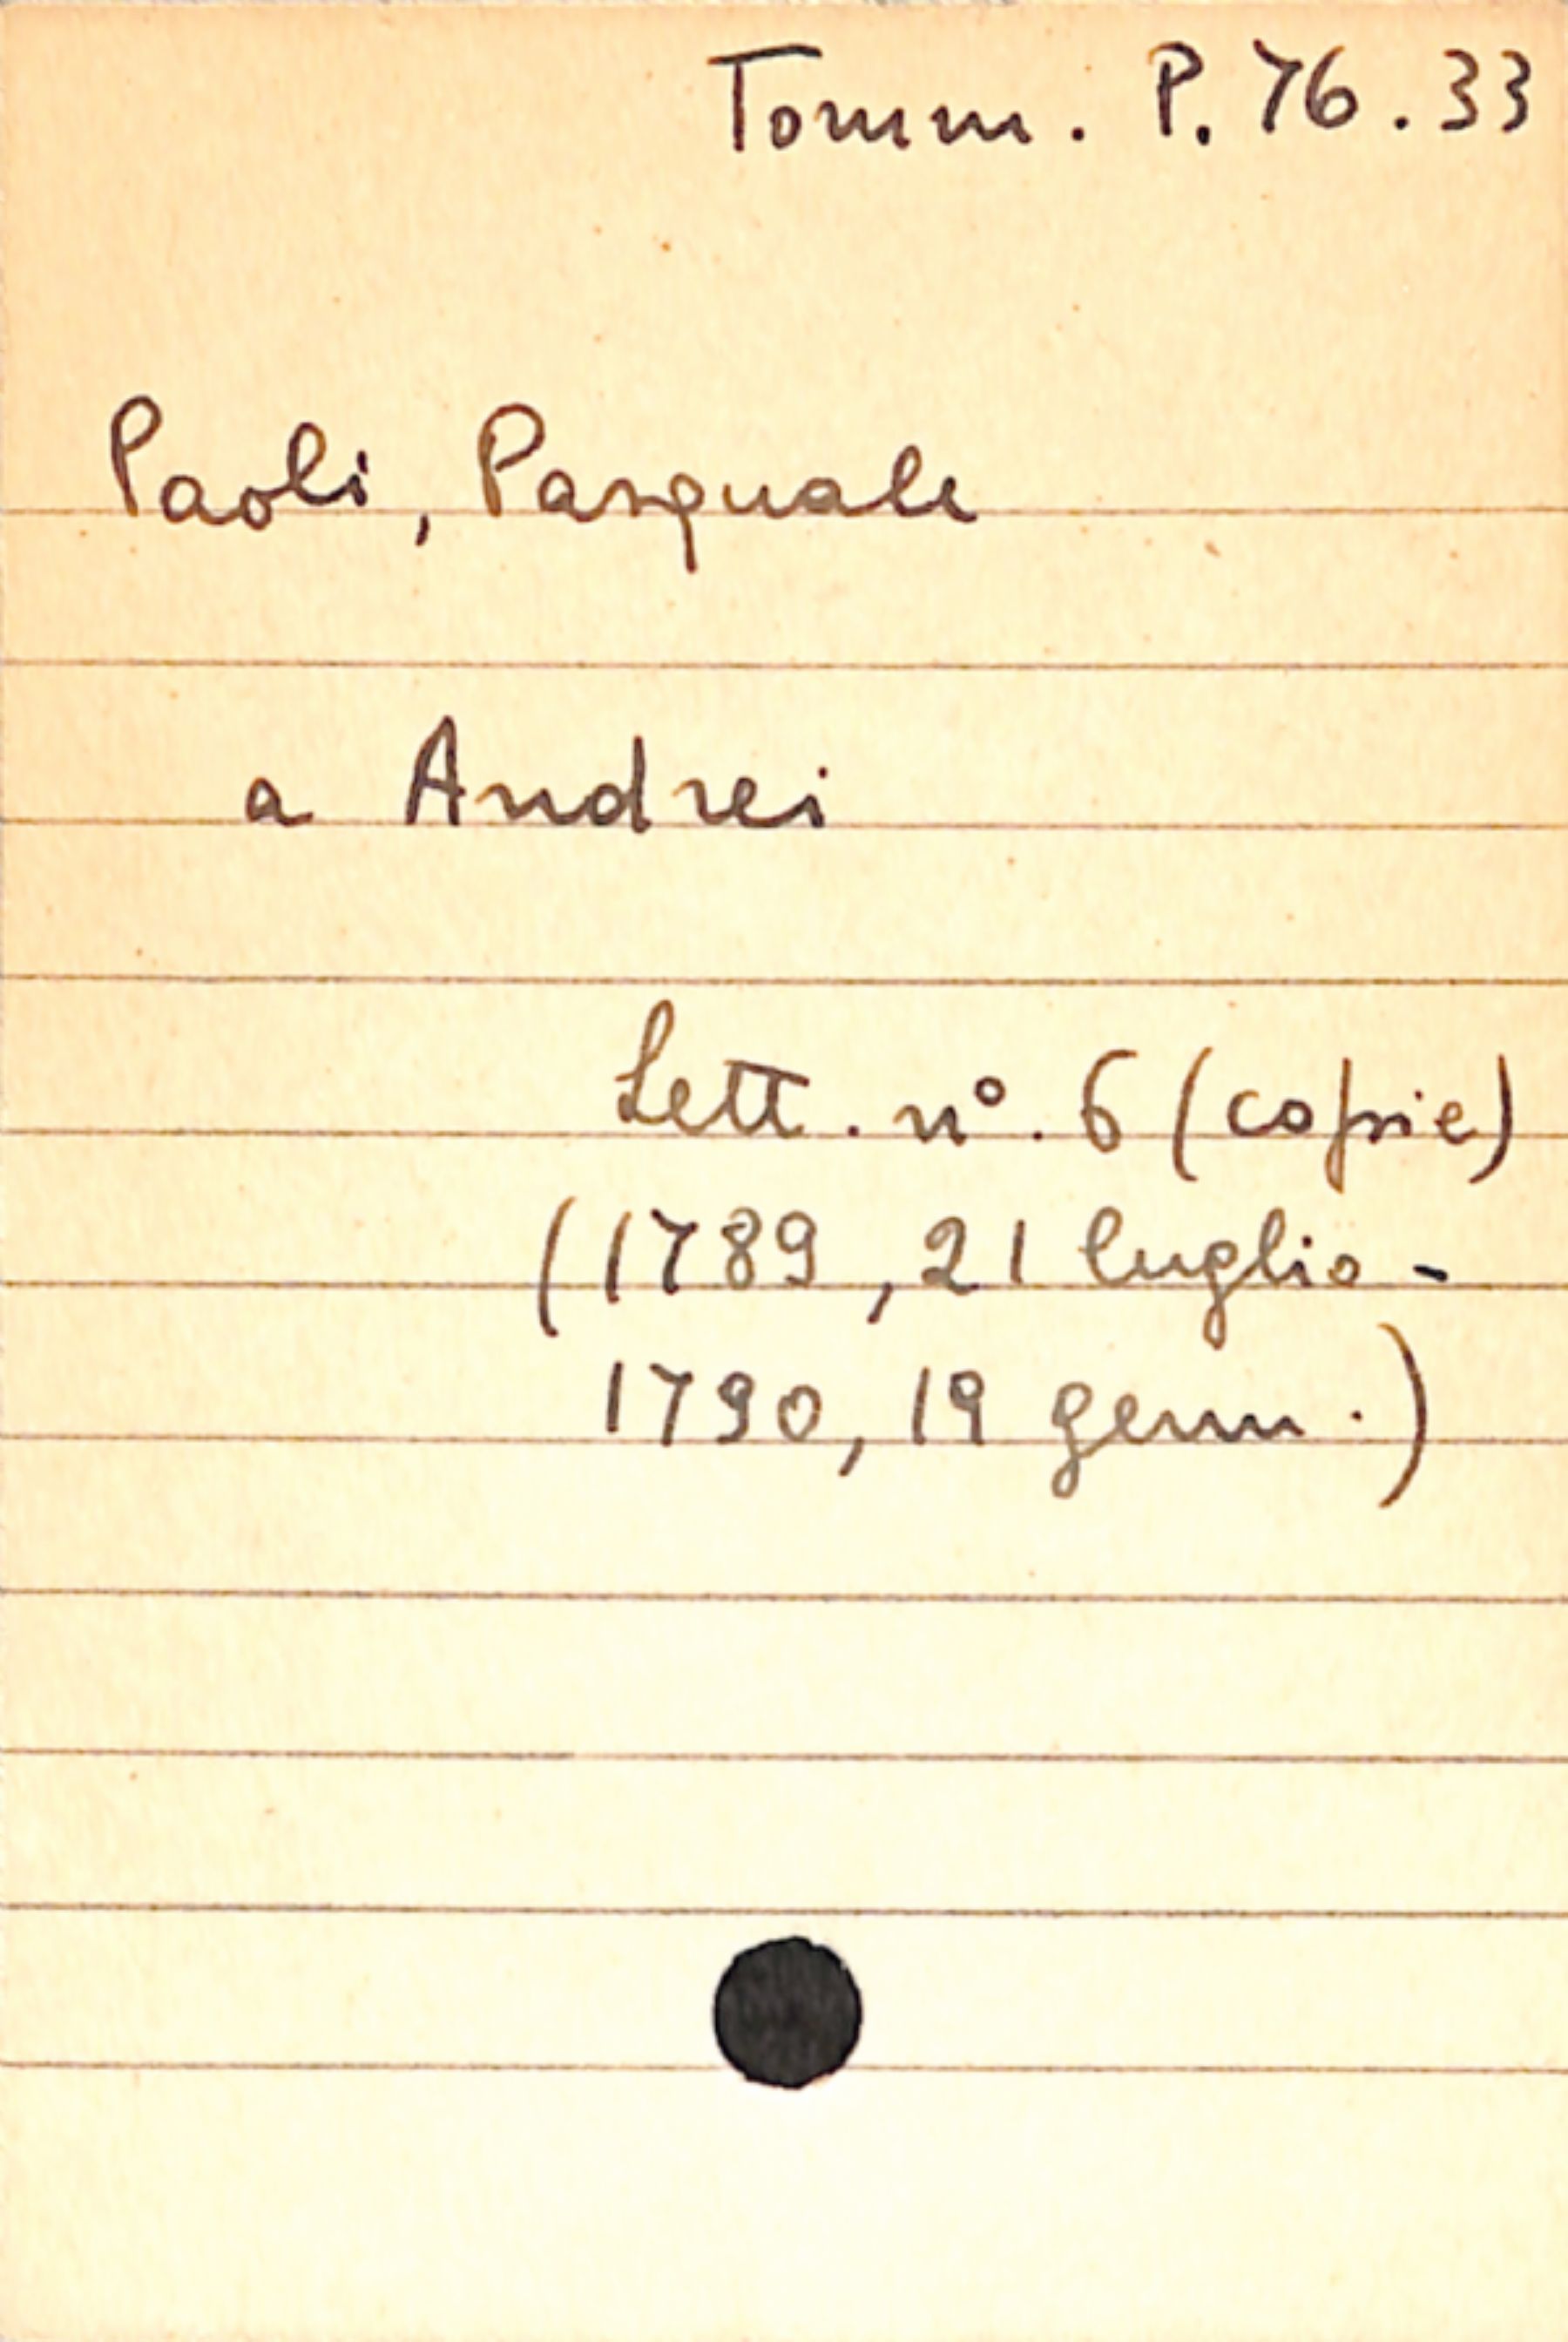 Tomm. P. 76. 33
Paoli, Pasquale
a Andrei
Lett. n°. 6 (copie)
(1789, 21 luglio -
1790, 19 genn.)